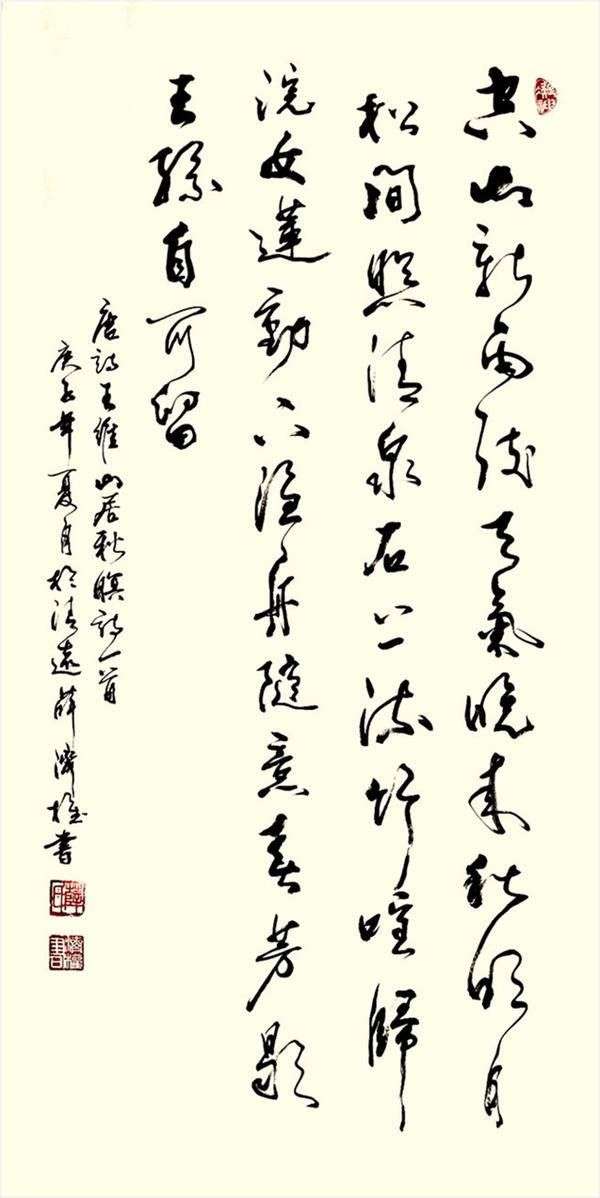 空山新雨後天氣晚來秋明月
松間照清泉石上流竹喧歸
浣女蓮動下漁舟隨意春芳歇
王孫自可留
唐詩王維山居秋暝詩一首
庚子年夏月於清遠薛濟書